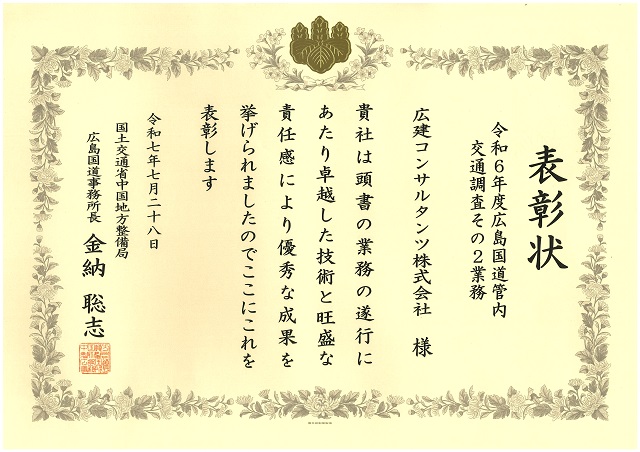 表彰状
令和6年度広島国道管内
交通調査その2業務
広建コンサルタンツ株式会社 様
貴社は頭書の業務の遂行に
あたり卓越した技術と旺盛な
責任感により優秀な成果を
挙げられましたのでここにこれを
表彰します
令和七年七月二十八日
国土交通省中国地方整備局
広島国道事務所長 金納 聡志